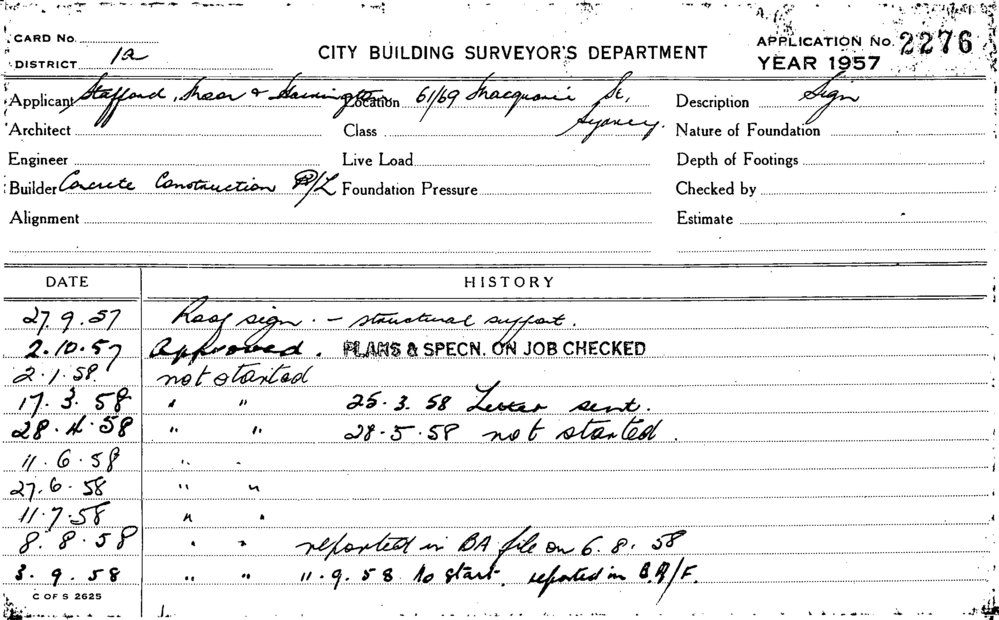 CARD No.
DISTRICT 1a
CITY BUILDING SURVEYOR'S DEPARTMENT
APPLICATION No. 2276
YEAR 1957
Applicant Stafford, Moor & Farrington Location 61/69 Macquarie St, Description Sign
Architect Class Sydney. Nature of Foundation
Engineer Live Load Depth of Footings
Builder Concrete Construction P/L Foundation Pressure Checked by
Alignment Estimate
DATE HISTORY
27.9.57 Roof sign. - structural support.
2.10.57 Approved. PLANS & SPECN. ON JOB CHECKED
2.1.58. not started
17.3.58 " " 25.3.58 Letter sent.
28.4.58 " " 28.5.58 not started.
11.6.58 " "
27.6.58 " "
11.7.58 " "
8.8.58 " " reported in BA file on 6.8.58
3.9.58 " " 11.9.58 No start. reported in B.A/F.
C OF S 2625